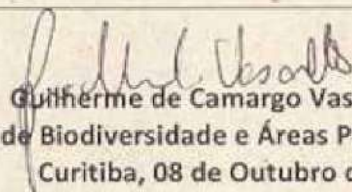 Guilherme de Camargo Vas
de Biodiversidade e Áreas P
Curitiba, 08 de Outubro d